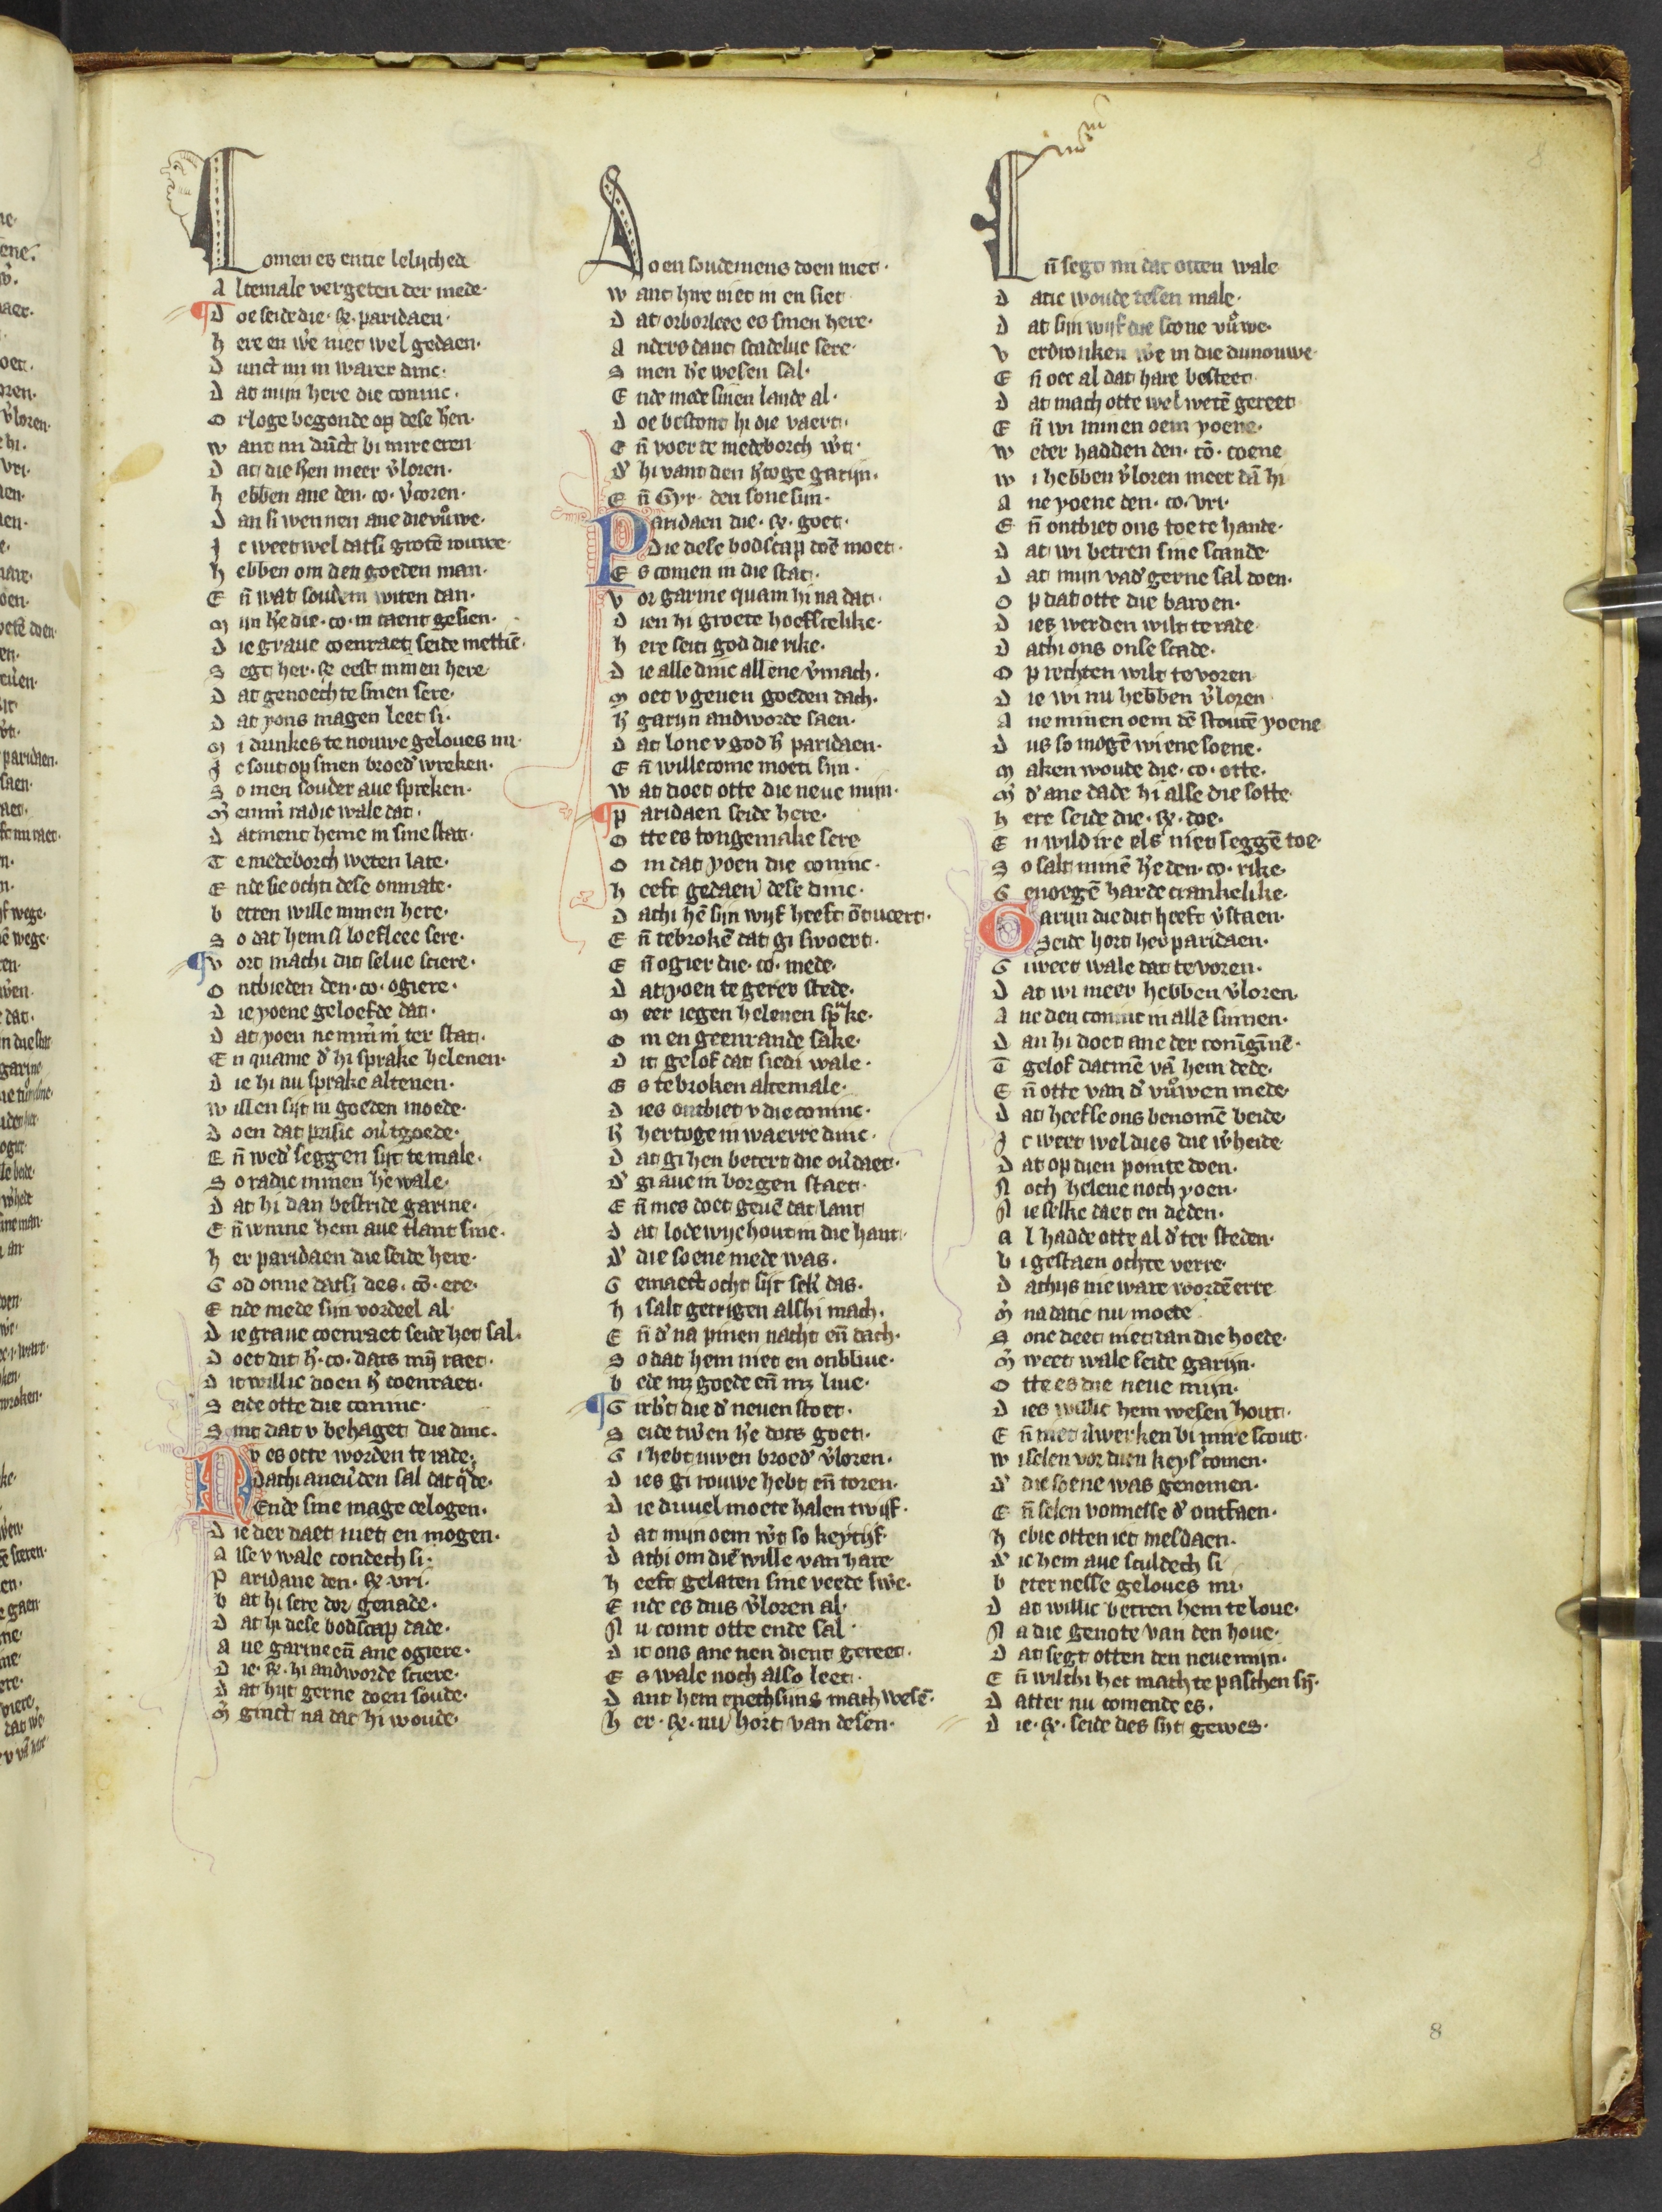 Comen es entie lelijched
Altemale vergeten der mede·
¶Doe seide die· ꝶ· paridaen·
here en w̉e niet wel gedaen·
Dunct mi in warer dinc·
Dat mijn here die coninc·
Orloge begonde op dese h̉en·
want mi dūct bi mire eren
Dat die h̉en meer v̉loren·
hebben ane den· co· v̉coren·
Dan si wennen ane die vůwe·
Jc weet wel datsi grotē rouwe·
hebben om den goeden man·
Eñ wat souden wi ten dan·
Mijn h̉e die· co· in taent gesien·
Die graue coenraet seide mettiē·
Segt her· ꝶ eest minen here
Dat genoech te sinen sere·
Dat yons magen leet si·
Mi dunkes te nouwe geloues mi·
Jc sout op sinen broed̉ wreken·
So men souder aue spreken·
M̉ emm̉ radic wale dat·
Datment heme in sine stat·
Te medeborch weten late·
Ende sie ocht dese onmate·
betren wille minen here·
So dat hem si loeflee sere·
¶Vort mach dit selue sciere·
Ontbieden den· co· ogiere·
Die yoene geloefde dat·
Dat yoen nemm̉m̉ ter stat·
En quame d̉ hi sprake helenen·
Die hi nu sprake altenen·
willen sijt in goeden moede·
Doen dat prisic ou̓tgoede·
Eñ wed̉ seggen sijt te male·
So radic minen h̉e wale·
Dat hi dan bestride garine·
Eñ winne hem aue tlant sine·
her paridaen die seide here·
God onne datsi des· cō· ere·
Ende mede sijn vordeel al
Die graue coenraet seide het sal·
Doet dit h̉· co· dats mij̄ raet·
Dit willic doen h̉ coenraet·
Seide otte die coninc·
Sint dat v behaget die dinc·
Nv es otte worden te rade·
Dathi aneu̓den sal dat q̊de·
Ende sine mage ologen·
Die der daet niet en mogen·
Alse v wale condech si·
Paridane den· ꝶ· vri·
bat hi sere dor genade·
Dat hi dese bodscap dade·
Aue garine eñ ane ogiere·
Die· ꝶ· hi andworde sciere·
Dat hijt gerne doen soude·
M̉ ginct na dat hi woude·
Doen soudemens doen niet·
want hire niet in en siet
Dat orborleec es sinen here·
Anders danct scadeluc sere·
Sinen h̉e wesen sal·
Ende mede sinen lande al·
Doe bestont hi die vaert·
Eñ voer te medeborch w̉t·
D̉ hi vant den h̉toge garijn·
Eñ Gyr· den sone sijn·
Paridaen die· ꝶ· goet·
Die dese bodscap doē moet·
Es comen in die stat·
Vor garine quam hi na dat·
Dien hi groete hoefscelike·
here seiti god die rike·
Die alle dinc allene v̉mach·
Moet v geuen goeden dach·
h̉ garijn andworde saen·
Dat lone v god h̉ paridaen·
Eñ willecome moeti sijn·
wat doet otte die neue mijn·
¶Paridaen seide here·
Otte es tongemake sere
Om dat yoen die coninc·
heeft gedaen dese dinc·
Dathi hē sijn wijf heeft ōtucert·
Eñ tebrokē dat gi swoert·
Eñ ogier die· co· mede·
Dat yoen te gerer stede·
Meer iegen helenen sp̄ke·
Om engeenrande sake·
Dit gelof dat siedi wale·
Es tebroken altemale·
Dies ontbiet v die coninc·
h̉ hertoge in waerre dinc·
Dat gi hen betert die ou̓daet·
D̉ gi aue in borgen staet·
Eñ mes doet geuē dat lant
Dat lodewijc hout in die hant·
D̉ die soene mede was·
Gemaect ocht sijt sek̉ das·
hi salt getrigen alshi mach·
Eñ d̉ na pinen nacht eñ dach·
So dat hem niet en ontbliue·
bede mꝫ goede eñ mꝫ liue·
¶Girb̉t die d̉ neuen stoet·
Seide tw̉en h̉e dats goet·
Gi hebt uwen broed̉ v̉loren·
Dies gi rouwe hebt eñ toren·
Die duuel moete halen twijf·
Dat mijn oem w̉t so keytijf
Dathi om diē wille van hare
heeft gelaten sine veede sw̉e·
Ende es dus v̉loren al·
Nu comt otte ende sal
Dit ons ane nen dient gereet·
Es wale noch also leet·
Dant hem enechsijns mach wesē·
her· ꝶ· nu hort van desen·
Eñ segt mi dat otten wale
Datic woude tesen male·
Dat sijn wijf die scone vůwe·
Verdronken w̉e in die dunouwe·
Eñ oec al dat hare besteet·
Dat mach otte wel wetē gereet
Eñ wi minen oem yoene·
weder hadden den· cō· coene
wi hebben v̉loren meer dā hi
Ane yoene den· co· vri·
Eñ ontbiet ons toe te hande·
Dat wi betren sine scande·
Dat mijn vad̉ gerne sal doen·
Op dat otte die baroen·
Dies werden wilt te rade·
Dathi ons onse scade·
Op rechten wilt te voren
Die wi nu hebben v̉loren
Ane minen oem dē stoutē yoene
Dus so mogē wi ene soene·
Maken woude die· co· otte·
M̉ d̉ ane dade hi alse die sotte·
here seide die· ꝶ· doe·
En wildire els niet seggē toe·
So salt minē h̉e den· co· rike·
Genoegē harde crankelike·
Garijn die dit heeft v̉staen·
Seide hort her paridaen·
Gi weet wale dat te voren·
Dat wi meer hebben v̉loren·
Ane den coninc in allē sinnen·
Dan hi doet ane der conīgīnē·
Tgelof datmē vā hem dede·
Eñ otte van d̉ vůwen mede·
Dat heefse ons benomē beide·
Jc weet wel dies die w̉heide·
Dat op dien pointe doen·
Noch helene noch yoen·
Nie selke daet en deden·
Al hadde otte al d̉ ter steden·
bi gestaen ochte verre·
Dathys nie ware wordē erre
M̉ na datic nu moete
Sone deet niet dan die hoede·
M̉ weet wale seide garijn·
Otte es die neue mijn·
Dies willic hem wesen hout·
Eñ niet v̓werken bi mire scout·
wi selen vor dien keys̉ comen·
D̉ die soene was genomen·
Eñ selen vonnesse d̉ ontfaen·
hebic otten iet mesdaen·
D̉ ic hem aue sculdech si
beter nesse geloues mi·
Dat willic betren hem te loue·
Na die genote van den houe·
Dat segt otten den neue mijn·
Eñ wilthi het mach te paschen sij̄·
Datter nu comende es·
Die· ꝶ· seide des sijt gewes·
8
8